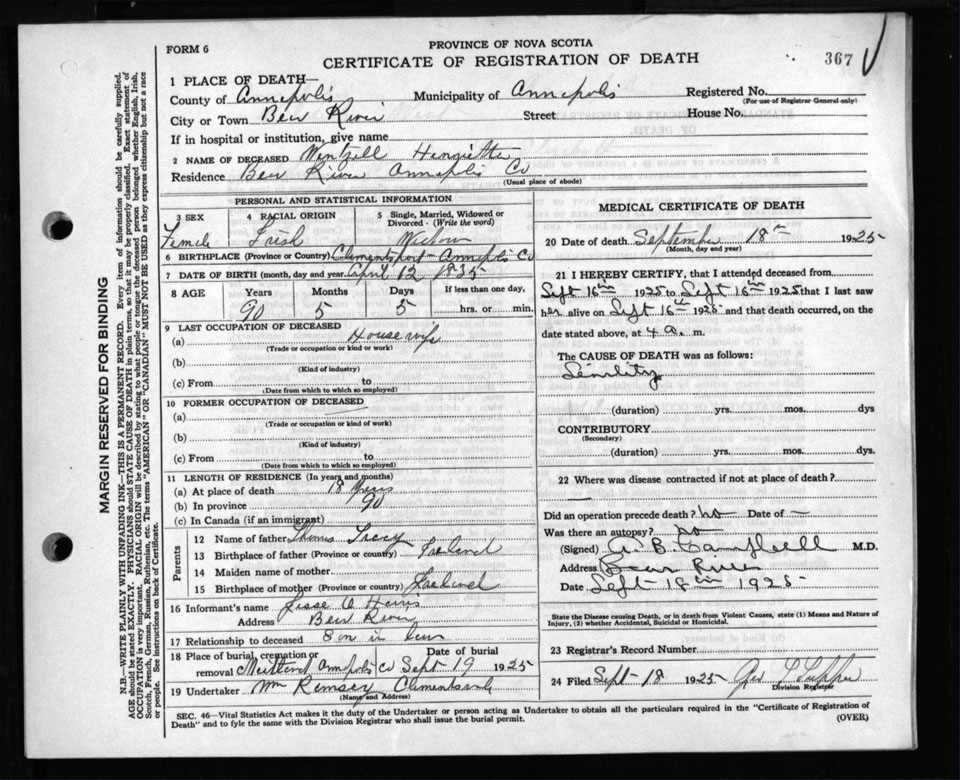 FORM 6
PROVINCE OF NOVA SCOTIA
CERTIFICATE OF REGISTRATION OF DEATH
367
1 PLACE OF DEATH—
County of Annapolis Municipality of Annapolis Registered No.
(For use of Registrar General only)
City or Town Bear River Street House No.
If in hospital or institution, give name
2 NAME OF DECEASED Wentzell Henrietta
Residence Bear River Annapolis Co
(Usual place of abode)
PERSONAL AND STATISTICAL INFORMATION
3 SEX 4 RACIAL ORIGIN 5 Single, Married, Widowed or Divorced - (Write the word)
Female Irish Widow
6 BIRTHPLACE (Province or Country) Clementsport - Annapolis Co
7 DATE OF BIRTH (month, day and year) April 12 1835
8 AGE Years Months Days If less than one day,
90 5 5 hrs. or min.
9 LAST OCCUPATION OF DECEASED
(a) Housewife
(Trade or occupation or kind or work)
(b)
(Kind of industry)
(c) From to
(Date from which to which so employed)
10 FORMER OCCUPATION OF DECEASED
(a)
(Trade or occupation or kind of work)
(b)
(Kind of industry)
(c) From to
(Date from which to which so employed)
11 LENGTH OF RESIDENCE (In years and months)
(a) At place of death 18 Years
(b) In province 90
(c) In Canada (if an immigrant)
Parents
12 Name of father Thomas
13 Birthplace of father (Province or country) Ireland
14 Maiden name of mother
15 Birthplace of mother (Province or country) Ireland
16 Informant's name Jesse O Harris
Address Bear River
17 Relationship to deceased Son in Law
18 Place of burial, cremation or removal Date of burial
Annapolis Co Sept 19 1925
19 Undertaker Wm Ramsey Clementsvale
(Name and Address)
MEDICAL CERTIFICATE OF DEATH
20 Date of death September 18th 1925
(Month, day and year)
21 I HEREBY CERTIFY, that I attended deceased from
Sept 16th 1925 to Sept 16th 1925 that I last saw
her alive on Sept 16th 1925 and that death occurred, on the
date stated above, at 4 a. m.
The CAUSE OF DEATH was as follows:
Senility
(duration) yrs. mos. dys
CONTRIBUTORY
(Secondary)
(duration) yrs. mos. dys.
22 Where was disease contracted if not at place of death?
—
Did an operation precede death? no Date of —
Was there an autopsy? no
(Signed) A. B. Campbell M.D.
Address Bear River
Date Sept 18th 1925
State the Disease causing Death, or in death from Violent Causes, state (1) Means and Nature of
Injury, (2) whether Accidental, Suicidal or Homicidal.
23 Registrar's Record Number
24 Filed Sept - 18 1925 Geo L Tupper
Division Registrar
SEC. 46—Vital Statistics Act makes it the duty of the Undertaker or person acting as Undertaker to obtain all the particulars required in the "Certificate of Registration of
Death" and to fyle the same with the Division Registrar who shall issue the burial permit.
(OVER)
MARGIN RESERVED FOR BINDING
N.B.—WRITE PLAINLY WITH UNFADING INK—THIS IS A PERMANENT RECORD. Every item of information should be carefully supplied.
AGE should be stated EXACTLY. PHYSICIANS should STATE CAUSE OF DEATH in plain terms, so that it may be properly classified. Exact statement of
OCCUPATION is very important. RACIAL ORIGIN will be described by stating to what people or tongue the deceased person belonged whether English, Irish,
Scotch, French, German, Russian, Ruthenian, etc. The terms "AMERICAN" OR "CANADIAN" MUST NOT BE USED as they express citizenship but not a race
or people. See instructions on back of Certificate.